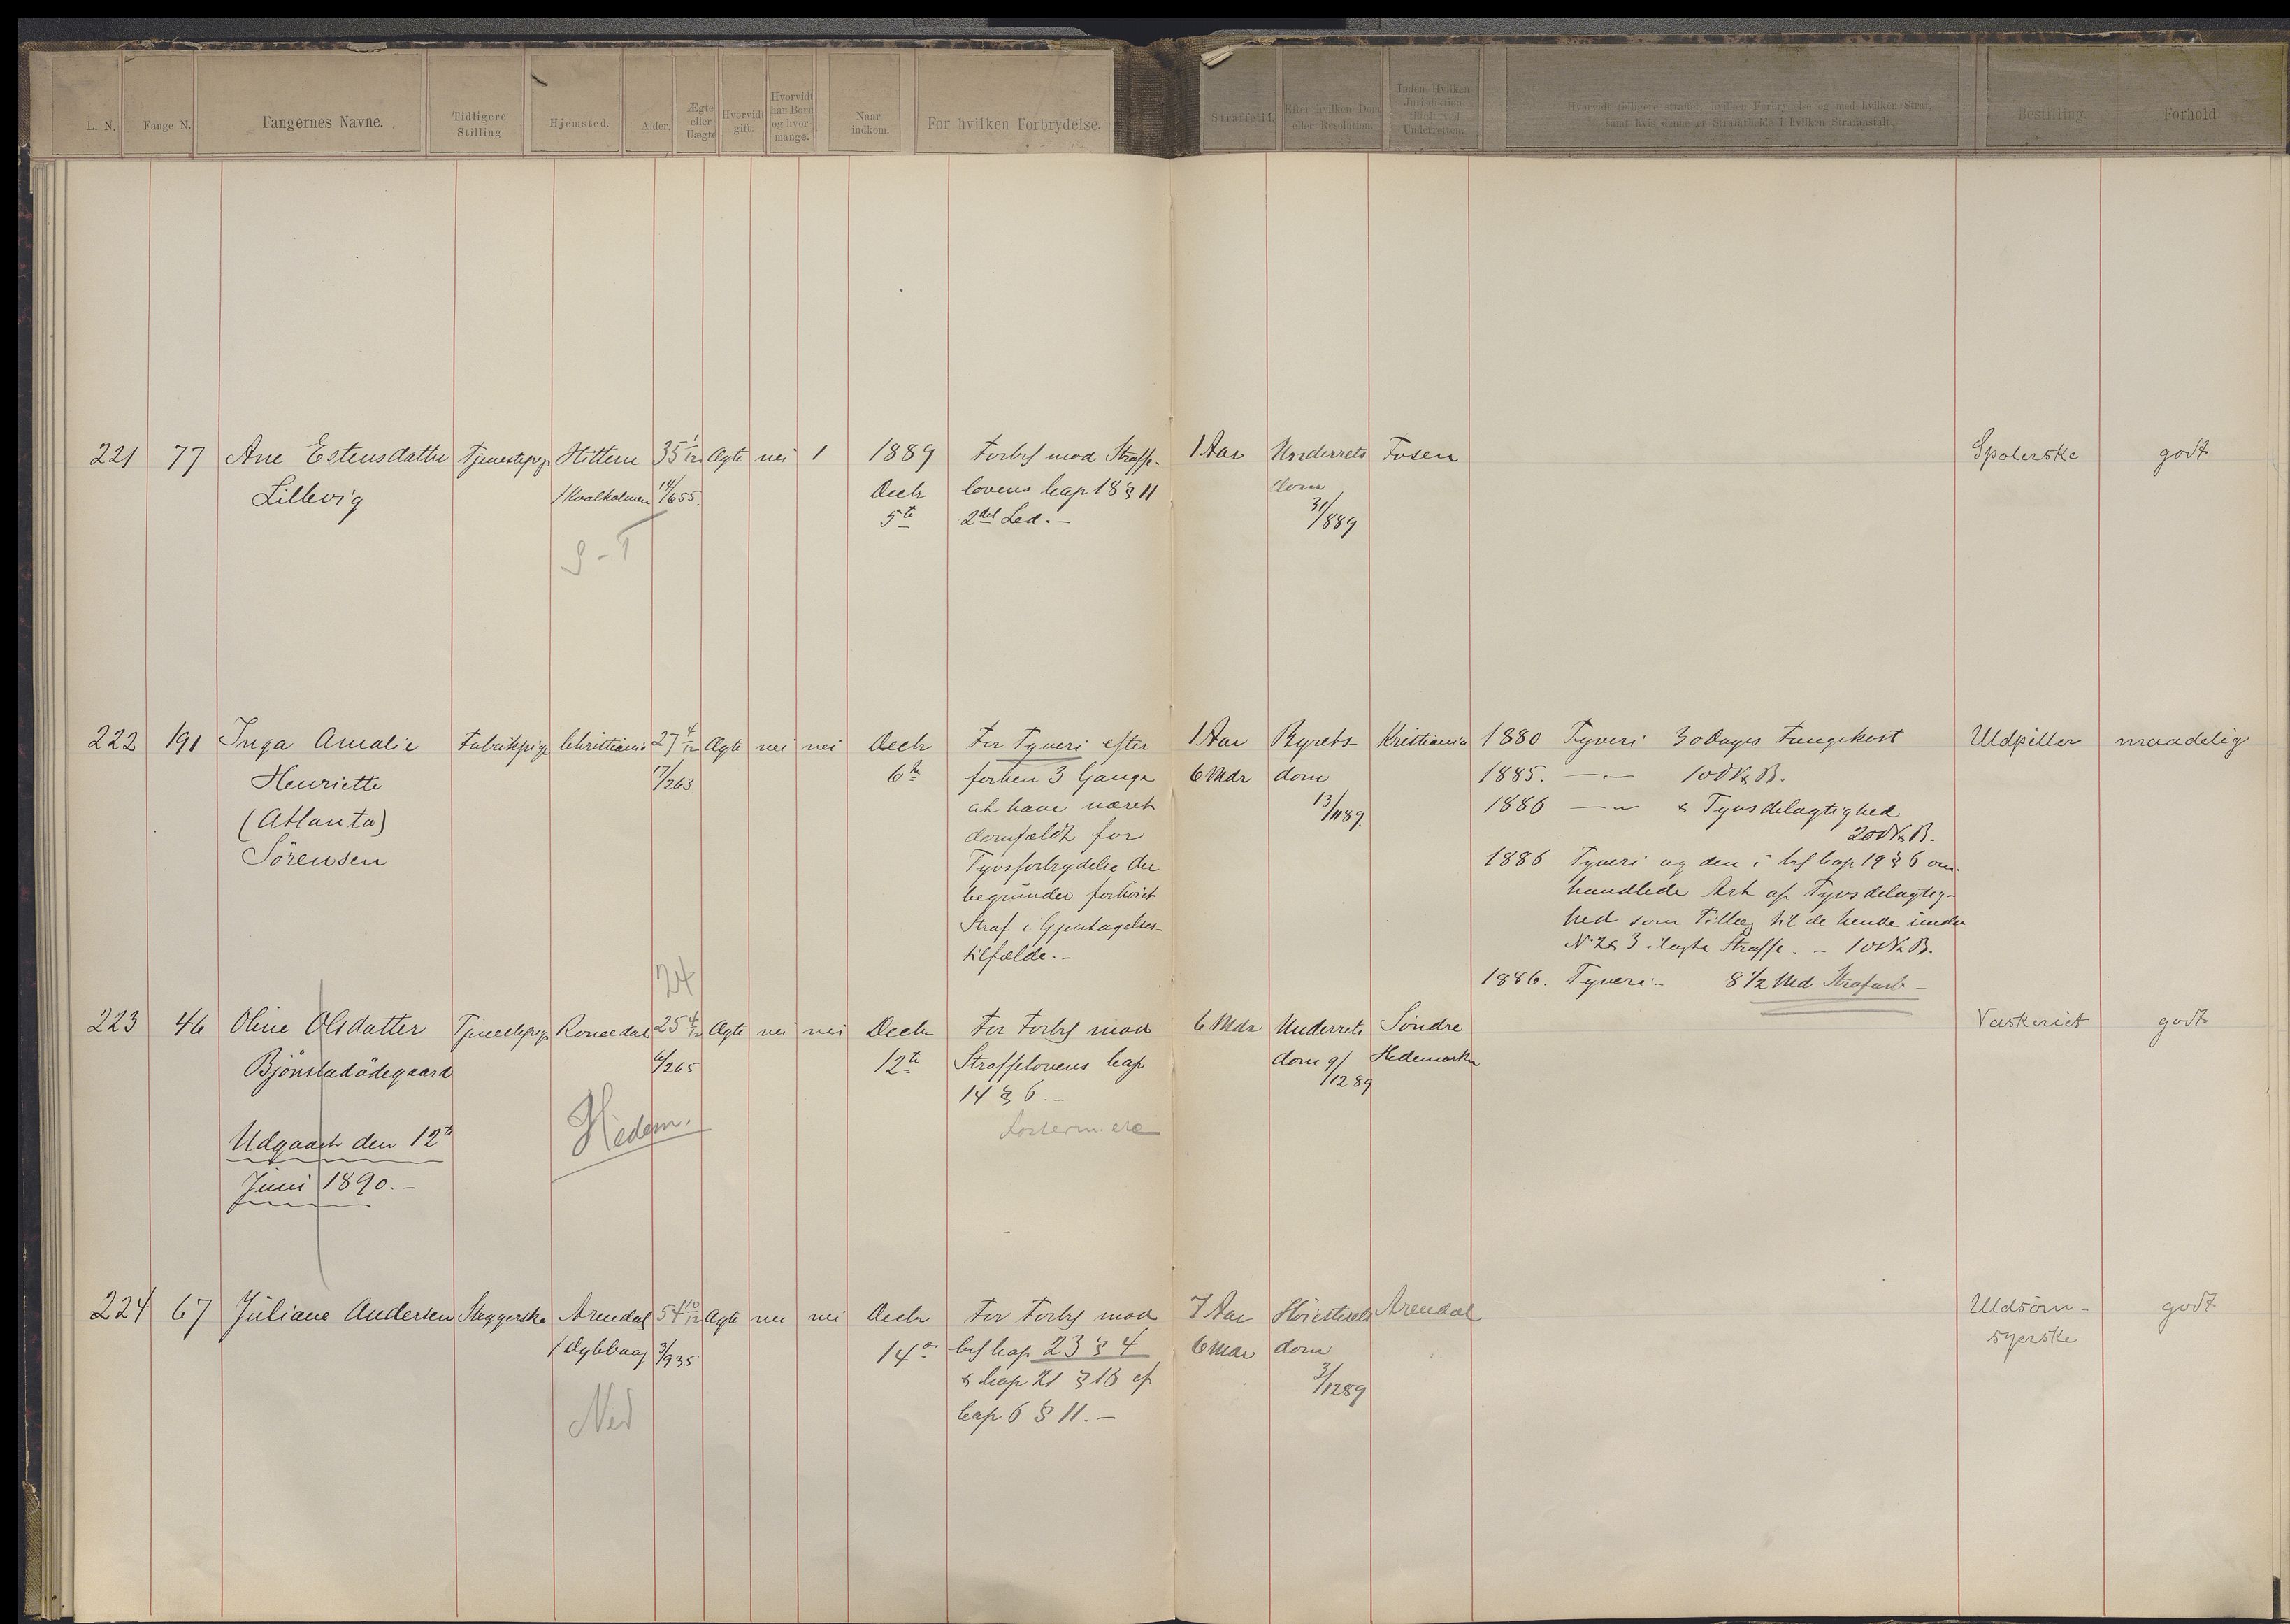 L. N. Fange N. Fangernes Navne. Tidligere Stilling Hjemsted. Alder. Ægte eller Uægte Hvorvidt gift. Hvorvidt har Børn og hvormange. Naar indkom. For hvilken Forbrydelse. Straffetid. Efter hvilken Dom eller Resolution. Inden Hvilken Jurisdiktion tiltalt ved Underretten. Hvorvidt tidligere straffet, hvilken Forbrydelse og med hvilken Straf, samt hvis denne er Strafarbeide i hvilken Strafanstalt. Bestilling Forhold
221 77 Ane Estensdatter Tjenestepige Hittern 35 1/12 Ægte nei 1 1889 Forbr mod Straffe- 1 Aar Underrets Fosen Spolerske godt
Lillevig /Kvalholmen 14/655. Decbr lovens Kap 18 § 11 dom
5te 2det Led. - 31/889
S-T
222 191 Inga Amalie Fabrikpige Christiania 27 4/12 Ægte nei nei Decbr For Tyveri efter 1 Aar Byrets- Kristiania 1880 Tyveri 30 Dages Fangekost Uldpiller maadelig
Henriette 17/263. 6te forhen 3 Gange 6 Mdr dom 1885. —"— 10 d V & B.
(Atlanta) at have været 13/1189. 1886 —"— & Tyvsdelagtighed
Sörensen domfældt for 20 d V & B.
Tyvsforbrydelse der 1886 Tyveri og den i Lrf Kap 19 § 6 om-
begrunder forhöiet handlede Art af Tyvsdelagtig-
Straf i Gjentagelses- hed som Tillæg til de hende under
tilfælde. - N. 2 & 3 ilagte Straffe. - 10 d V & B.
24 1886. Tyveri - 8 1/2 Md Strafarb -
223 46 Oline Olsdatter Tjenestepige Romedal 25 4/12 Ægte nei nei Decbr For Forbr mod 6 Mdr Underrets Söndre Vaskeriet godt
Bjönstadödegaard 12te Straffelovens Kap dom 9/1289 Hedemarken
14 § 6. -
Hedem.
Udgaaet den 12te
Juni 1890. -
224 67 Juliane Andersen Arendal 54 10/12 Ægte nei nei Decbr For Forbr mod 7 Aar Höiesterets Arendal Uldsöm- godt
3/935 14de Lrf Kap 23 § 4 6 Mdr dom syerske
& Kap 21 § 16 cf 3/1289
Kap 6 § 11. -
Ned